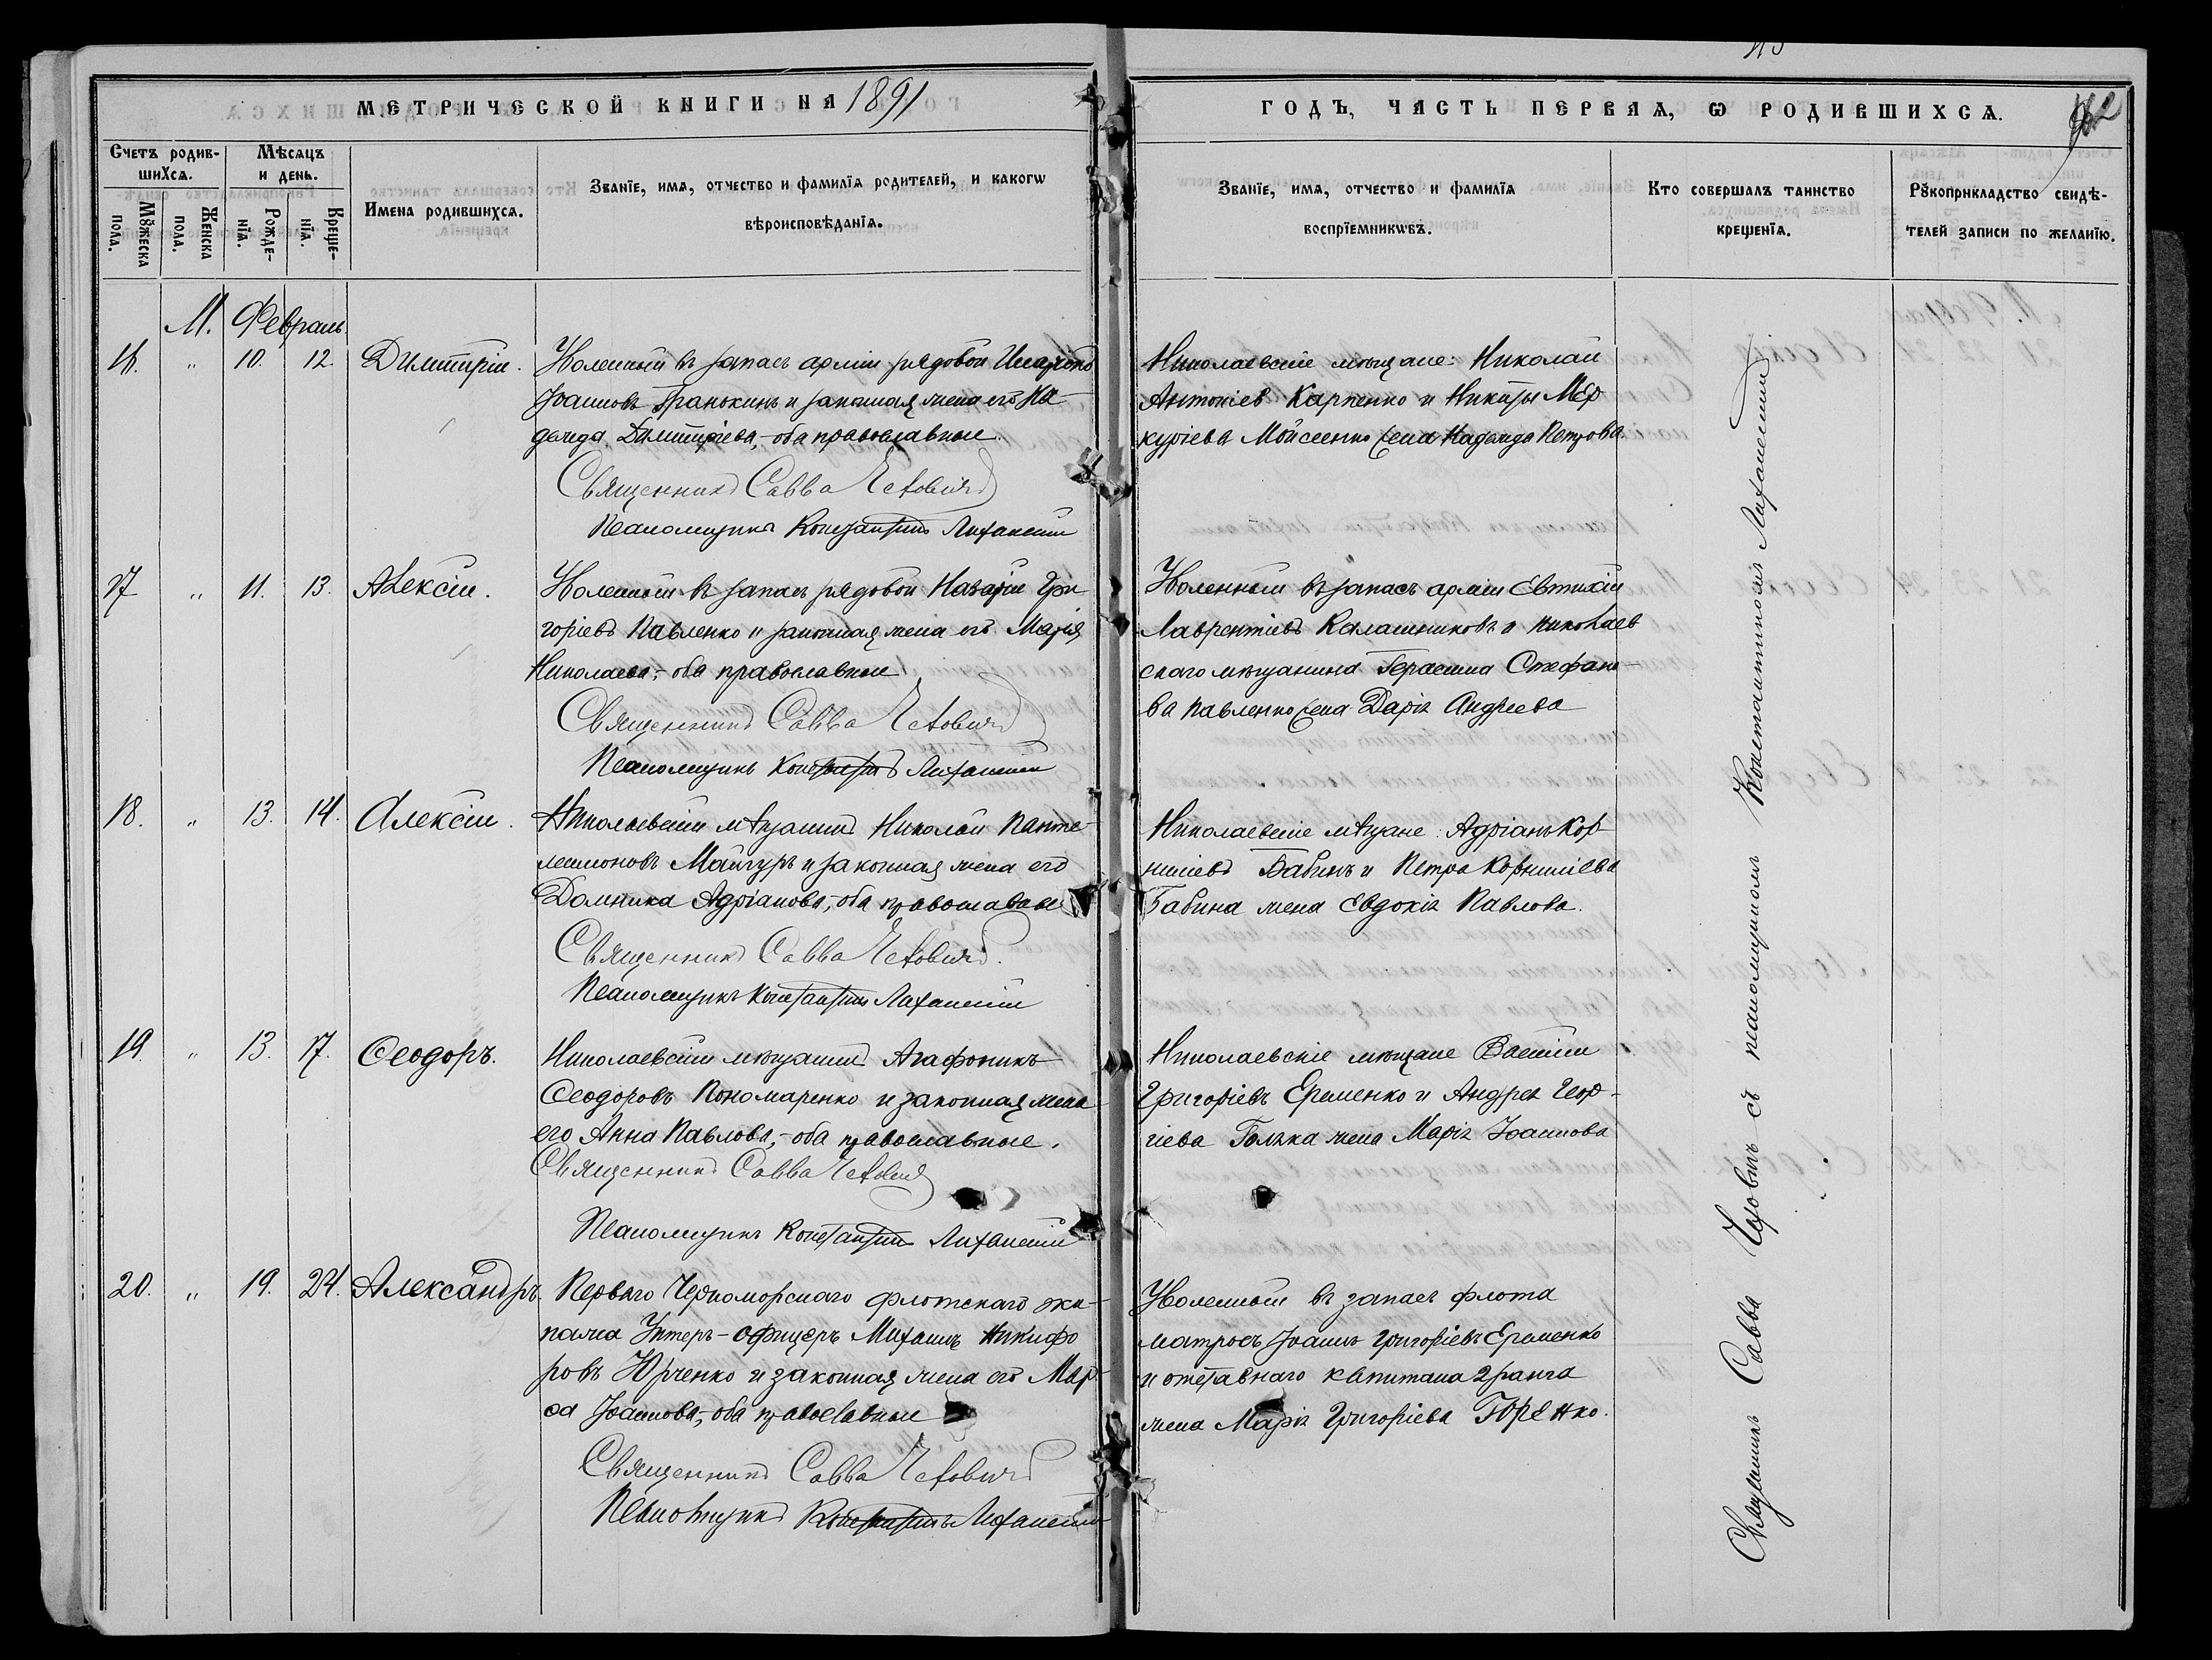 МЕТРИЧЕСКОЙ КНИГИ НА 1891
ГОДЪ, ЧАСТЬ ПЕРВАЯ, Ѡ РОДИВШИХСѦ.
Счетъ родив-
шихсѧ.
Мѣсѧцъ
и день.
Мꙋжеска
пола.
Женска
пола.
Рожде-
нїѧ.
Креще-
нїѧ.
Имена родившихсѧ.
Званїе, имѧ, отчество и фамилїѧ родителей, и какогѡ
вѣроисповѣданїѧ.
Званїе, имѧ, отчество и фамилїѧ
воспрїемникѡвъ.
Кто совершалъ таинство
крещенїѧ.
Рꙋкоприкладство свидѣ-
телей записи по желанїю.
М. Февраль
16. " 10. 12. Димитрій.
Уволенный въ запасъ арміи рядовой
Іоанновъ Гранькинъ и законная жена его На-
дежда Димитріева,- оба православные.
Священникъ Савва Четовичъ
Псаломщикъ Константинъ Лиханскій
Николаевскіе мѣщане: Николай
Антоніевъ Карпенко и Никиты Мер-
куріева Мойсеенко жена Надежда Петрова.
17 " 11. 13. Алексій.
Уволенный въ запасъ рядовой Назарій Гри-
горіевъ Павленко и законная жена его Марія
Николаева,- оба православные
Священникъ Савва Четовичъ
Псаломщикъ Константинъ Лиханскій
Уволенный въ запасъ арміи Евтихій
Лаврентіевъ Калашниковъ и николаев
скаго мѣщанина Герасима Стефано-
ва Павленко жена Дарія Андреева
18. " 13. 14. Алексій.
Николаевскій мѣщанинъ Николай Панте-
леимоновъ Майгуръ и законная жена его
Домника Адріанова,- оба православные
Священникъ Савва Четовичъ.
Псаломщикъ Константинъ Лиханскій
Николаевскіе мѣщане: Адріанъ Кор-
ниліевъ Бабинъ и Петра Корниліева
Бабина жена Евдокія Павлова.
19. " 13. 17. Ѳеодоръ.
Николаевскій мѣщанинъ Агафоникъ
Ѳеодоровъ Пономаренко и законная жена
его Анна Павлова,- оба православные.
Священникъ Савва Четовичъ
Псаломщикъ Константинъ Лиханскій
Николаевскіе мѣщане Василій
Григоріевъ Еременко и Андрея Геор-
гіева жена Марія Іоаннова
20. " 19. 24. Александръ.
Перваго Черноморскаго флотскаго эки-
пажа Унтеръ-офицеръ Михаилъ Никифо
ровъ Юрченко и законная жена его Мар-
ѳа Іоаннова,- оба православные
Священникъ Савва Четовичъ
Псаломщикъ Константинъ Лиханскій
Уволенный въ запасъ флота
матросъ Іоаннъ Григоріевъ Еременко
и отставнаго капитана 2 ранга
жена Марія Григоріева Горенко.
Священникъ Савва Четовичъ съ псаломщикомъ Константиномъ Лиханскимъ